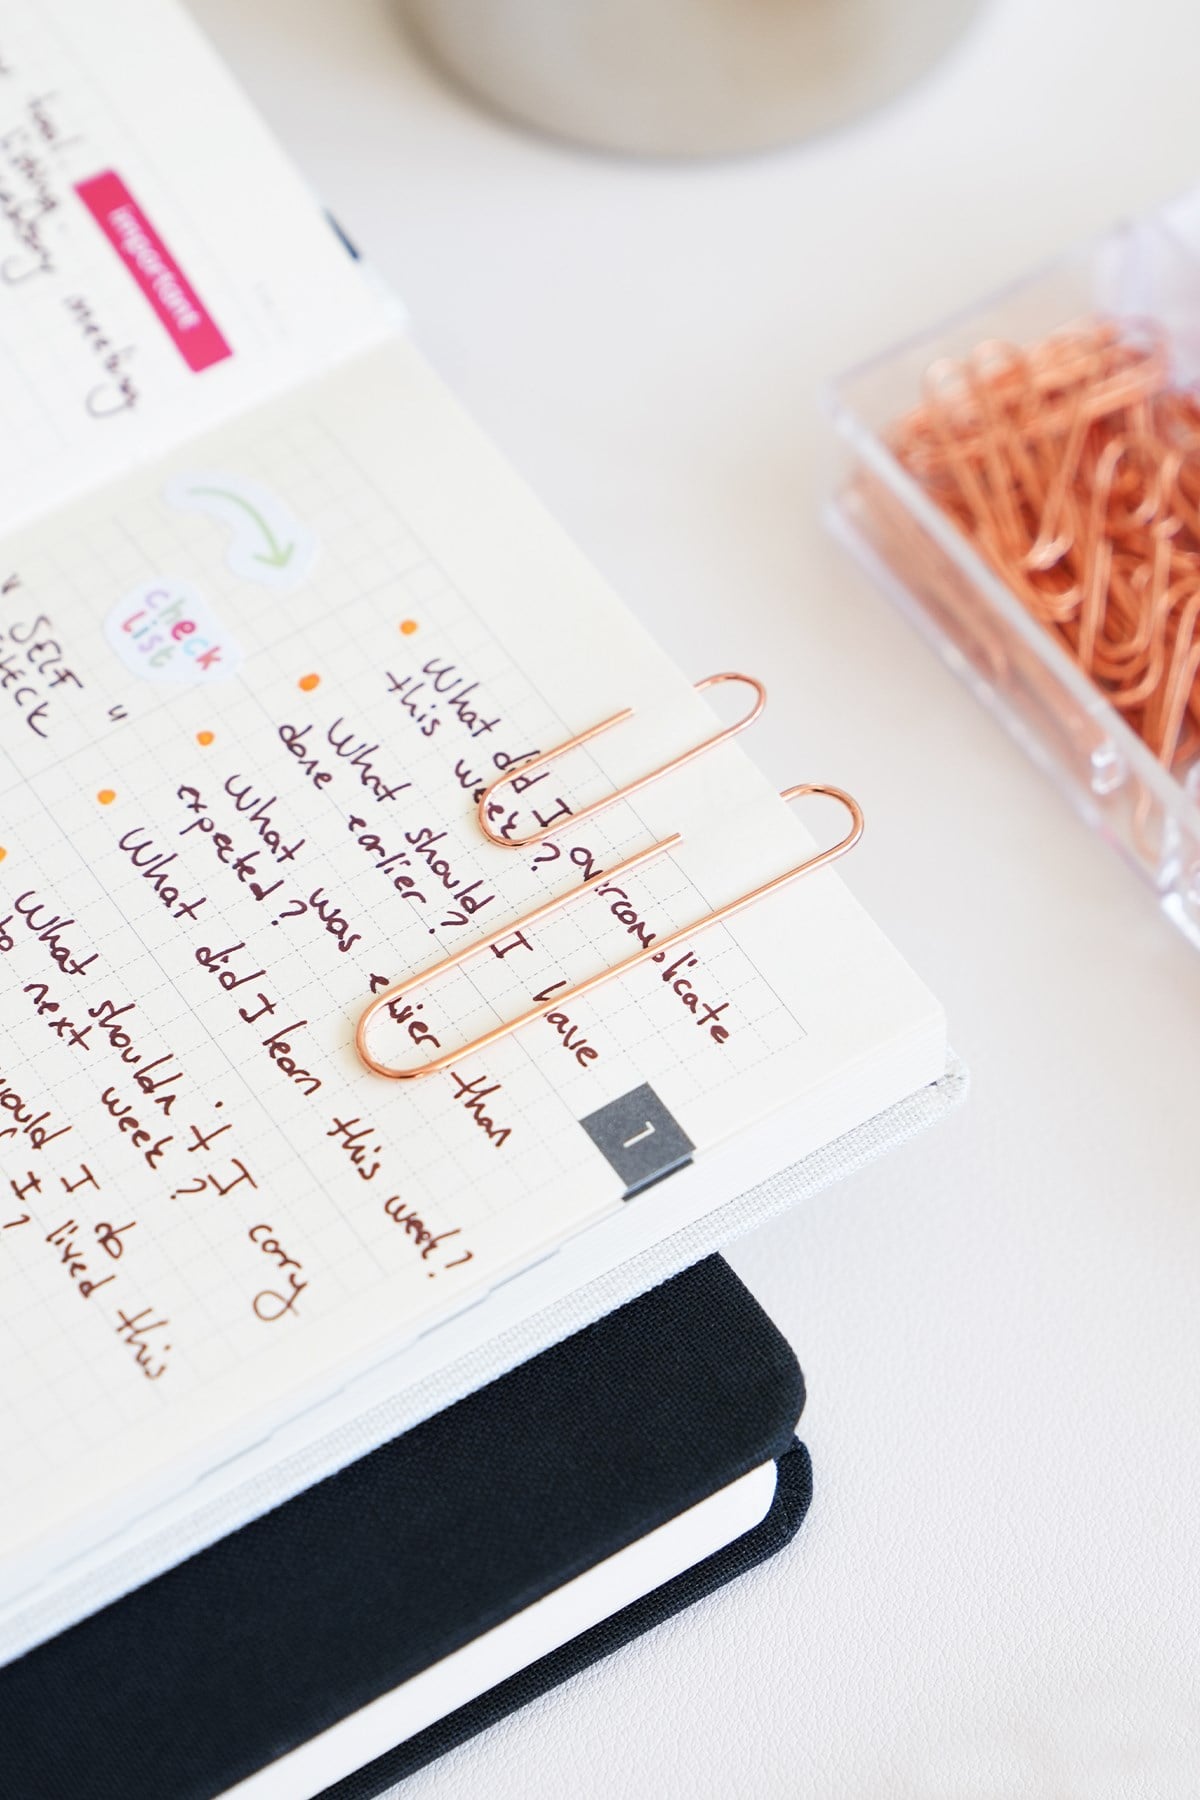 important
tool.
meeting
" SELF
CHECK "
check
list
What did I overcomplicate
this week?
What should I have
done earlier?
What was easier than
expected?
What did I learn this week?
What shouldn't I cary
to next week?
would I do
I lived this